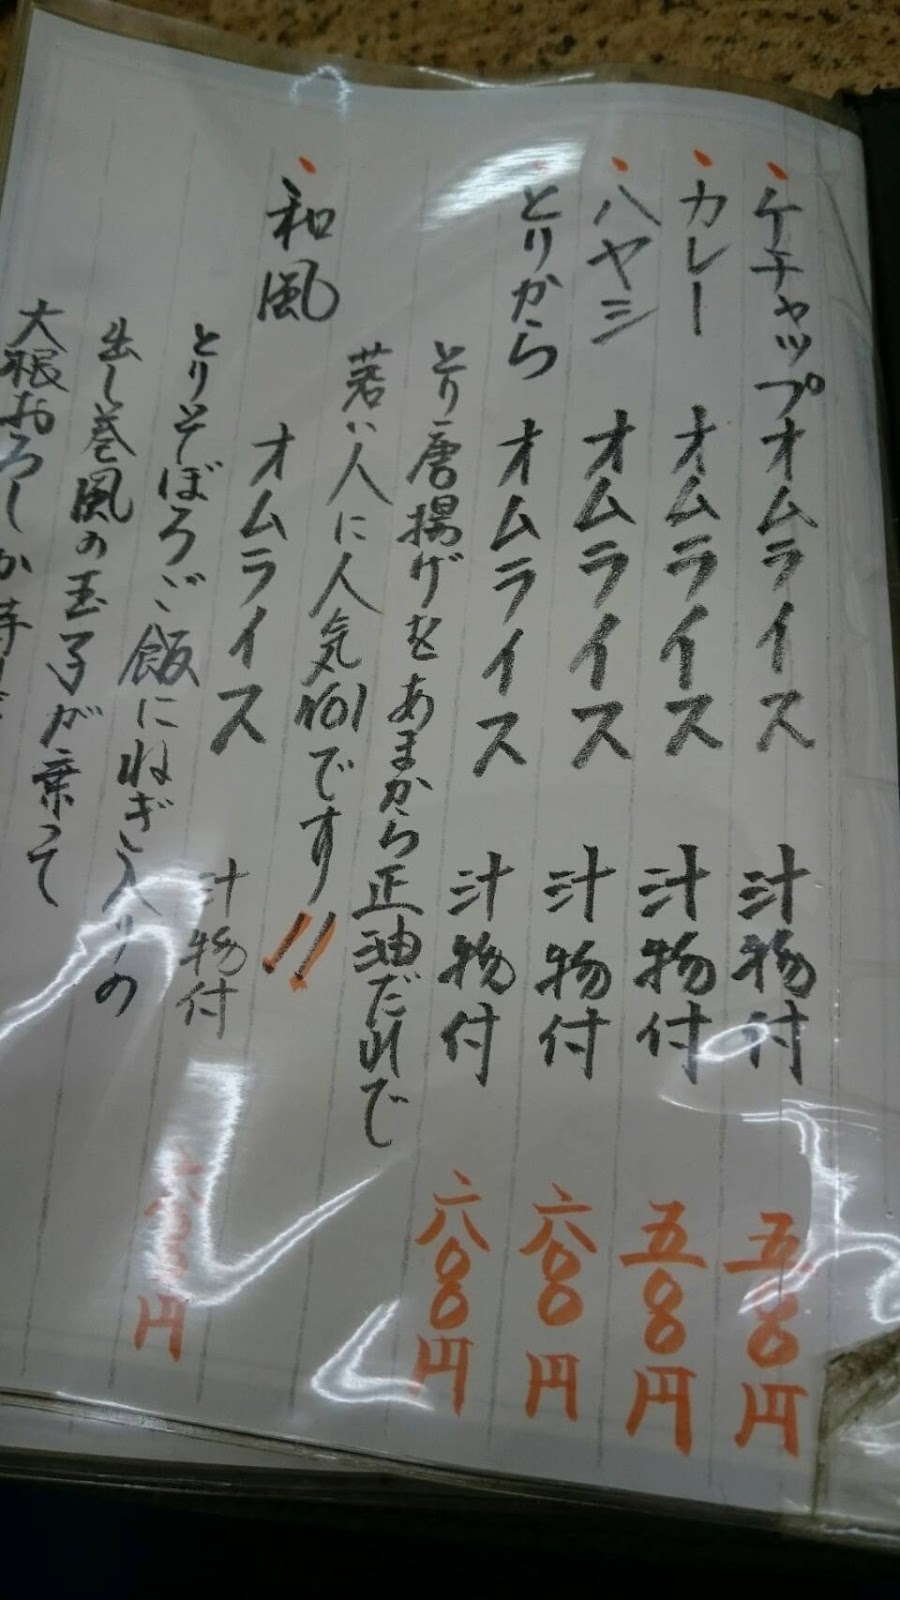 ケチャップオムライス 汁物付 五〇〇円
カレー オムライス 汁物付 五〇〇円
ハヤシ オムライス 汁物付 六〇〇円
とりから オムライス 汁物付 六〇〇円
とり唐揚げをあまから正油だれで
若い人に人気No1です!!
和風 オムライス 汁物付 六〇〇円
とりそぼろご飯にねぎ入りの
出し巻風の玉子が乗って
大根おろしが